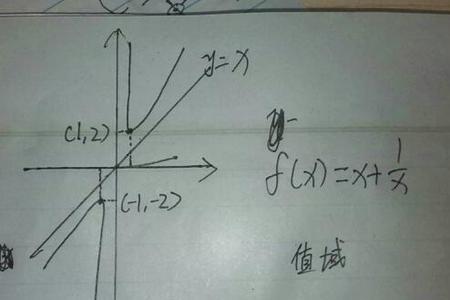 y=x
(1,2)
f(x)=x+1/x
(-1,-2)
值域